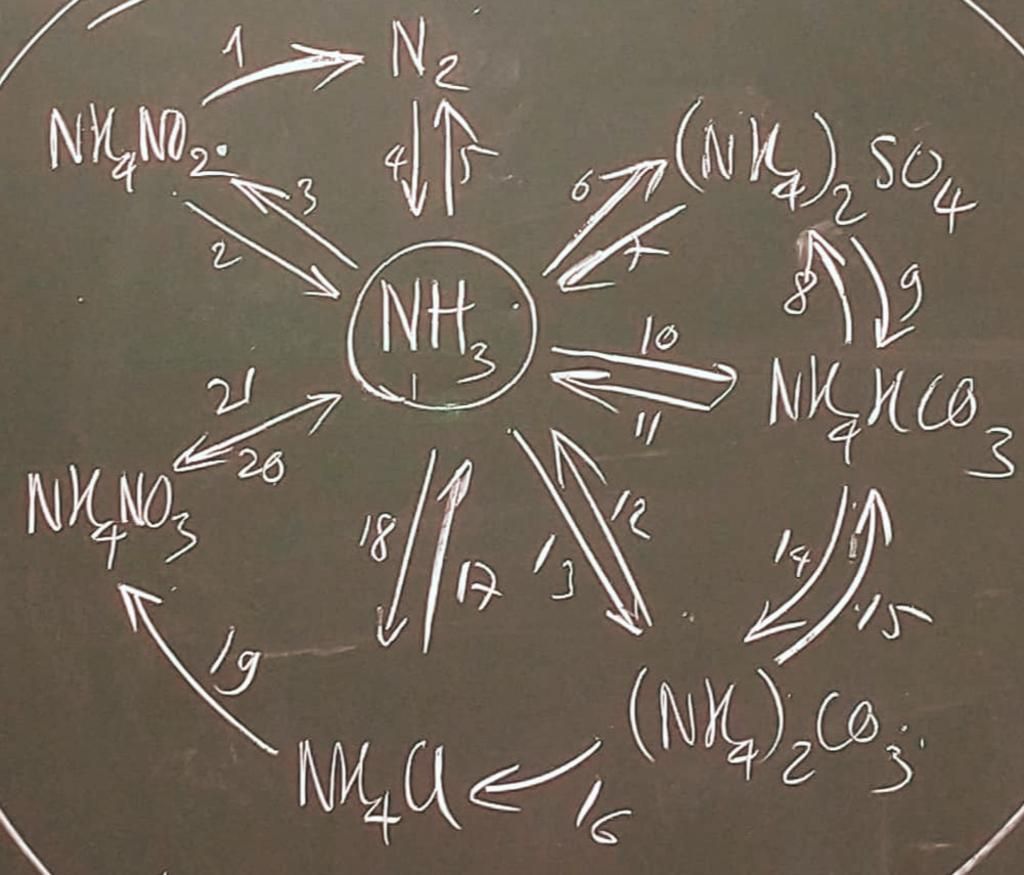 1 N2
NH4NO2.
4 5
6 (NH4)2 SO4
3
2 7
NH3 8 9
10
21 NH4HCO3
11
20
NH4NO3
18 17 13 12 14 15
19
(NH4)2CO3
NH4Cl 16